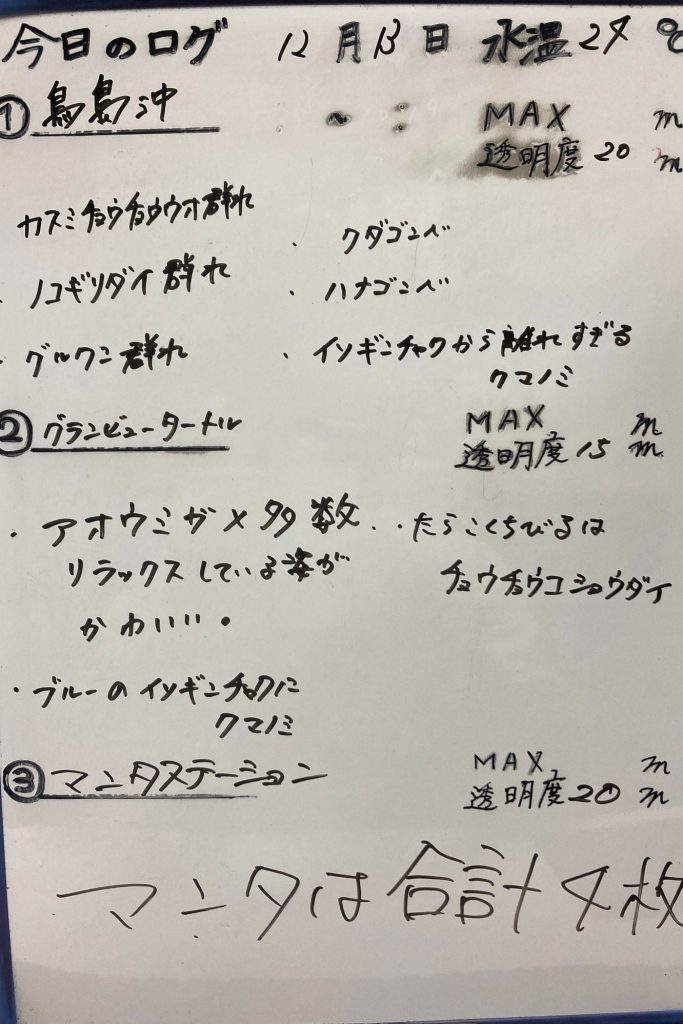 今日のログ 12月13日 水温24℃
① 鳥島沖 ~ : MAX m
透明度 20 m
カスミチョウチョウウオ群れ
・クダゴンベ
・ノコギリダイ群れ
・ハナゴンベ
・グルクン群れ
・イソギンチャクから離れすぎる
クマノミ
② グランビュータートル MAX m
透明度 15 m
・アオウミガメ多数
・たらこくちびるは
リラックスしている姿が
チョウチョウコショウダイ
かわいい。
・ブルーのイソギンチャクに
クマノミ
③ マンタステーション MAX m
透明度 20 m
マンタは合計4枚